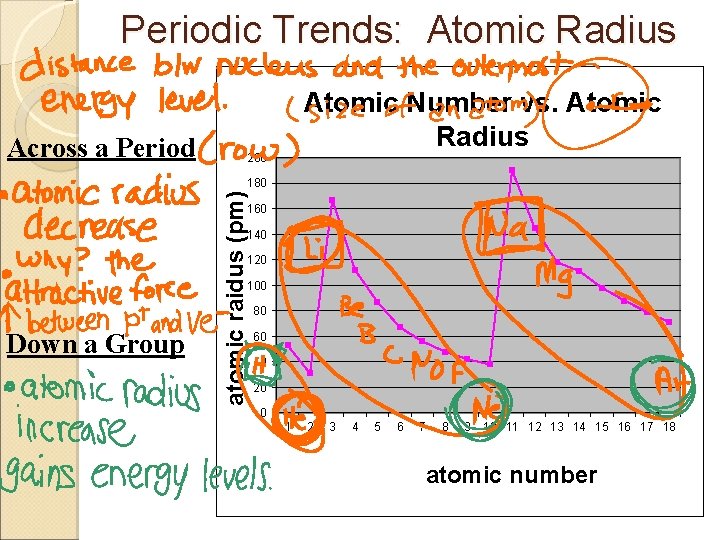 Periodic Trends: Atomic Radius
distance b/w nucleus and the outermost
energy level. (size of an atom)
Atomic Number vs. Atomic
Radius
Across a Period (row)
• atomic radius
decrease
• why? the
attractive force
↑ between p+ and ve-
Down a Group
• atomic radius
increase
gains energy levels.
atomic raidus (pm)
200
180
160
140
120
100
80
60
20
0
H
He
Li
Be
B
C
N
O
F
Ne
Na
Mg
Ar
1 2 3 4 5 6 7 8 9 10 11 12 13 14 15 16 17 18
atomic number